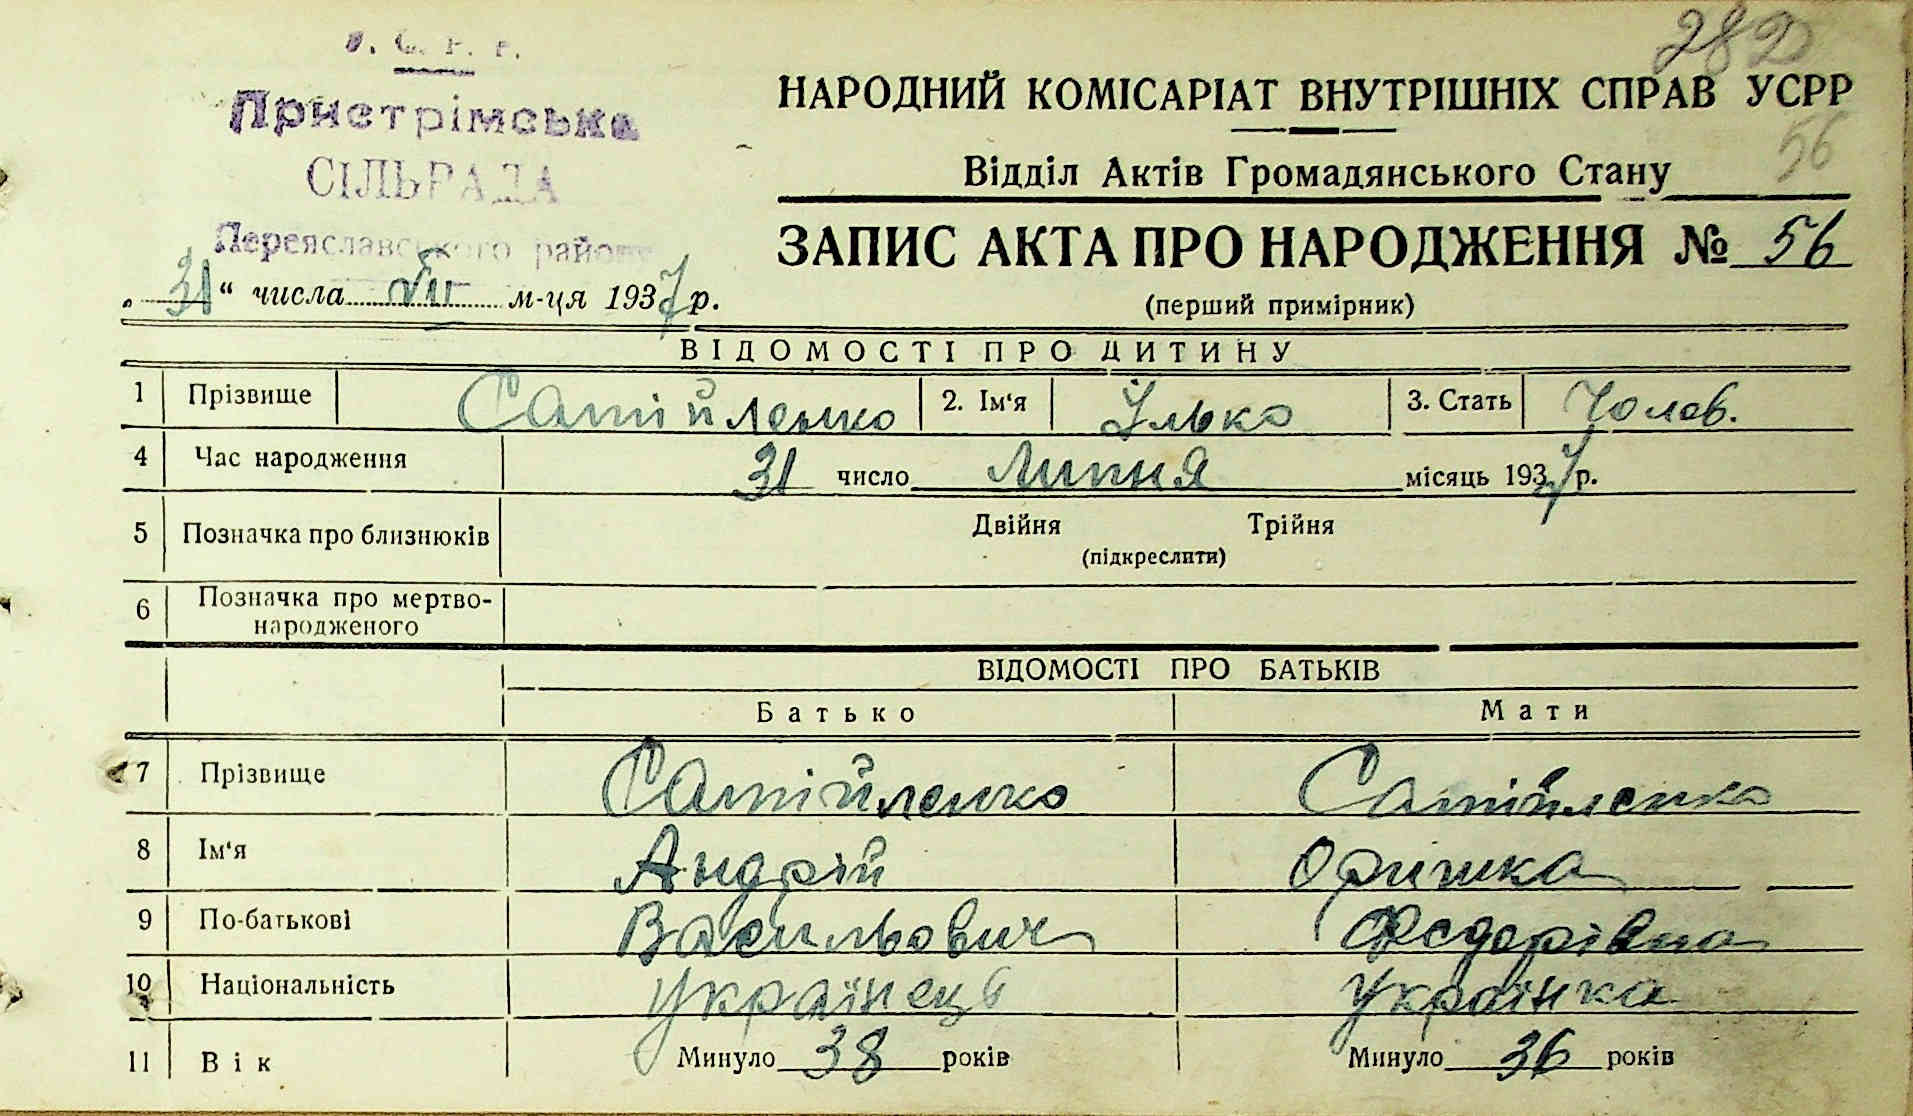 282
У. С. Р. Р.
Пристрімська
СІЛЬРАДА
Переяславського району
„31“ числа VII м-ця 1937 р.
НАРОДНИЙ КОМІСАРІАТ ВНУТРІШНІХ СПРАВ УСРР
56
Відділ Актів Громадянського Стану
ЗАПИС АКТА ПРО НАРОДЖЕННЯ № 56
(перший примірник)
ВІДОМОСТІ ПРО ДИТИНУ
1 Прізвище Сатійленко 2. Ім‘я Ілько 3. Стать Чолов.
4 Час народження 31 число Липня місяць 1937 р.
5 Позначка про близнюків Двійня Трійня
(підкреслити)
6 Позначка про мертво-
народженого
ВІДОМОСТІ ПРО БАТЬКІВ
Батько Мати
7 Прізвище Сатійленко Сатійленко
8 Ім‘я Андрій Оришка
9 По-батькові Васильович Федорівна
10 Національність Українець Українка
11 Вік Минуло 38 років Минуло 36 років